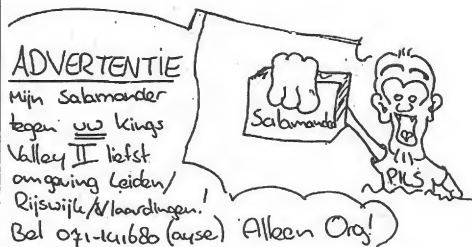 ADVERTENTIE
Mijn Salamander
tegen uw Kings
Valley II liefst
omgeving Leiden/
Rijswijk/Vlaardingen!
Bel 071-141680 (ayse)
Alleen Org!
Salamander
PILS